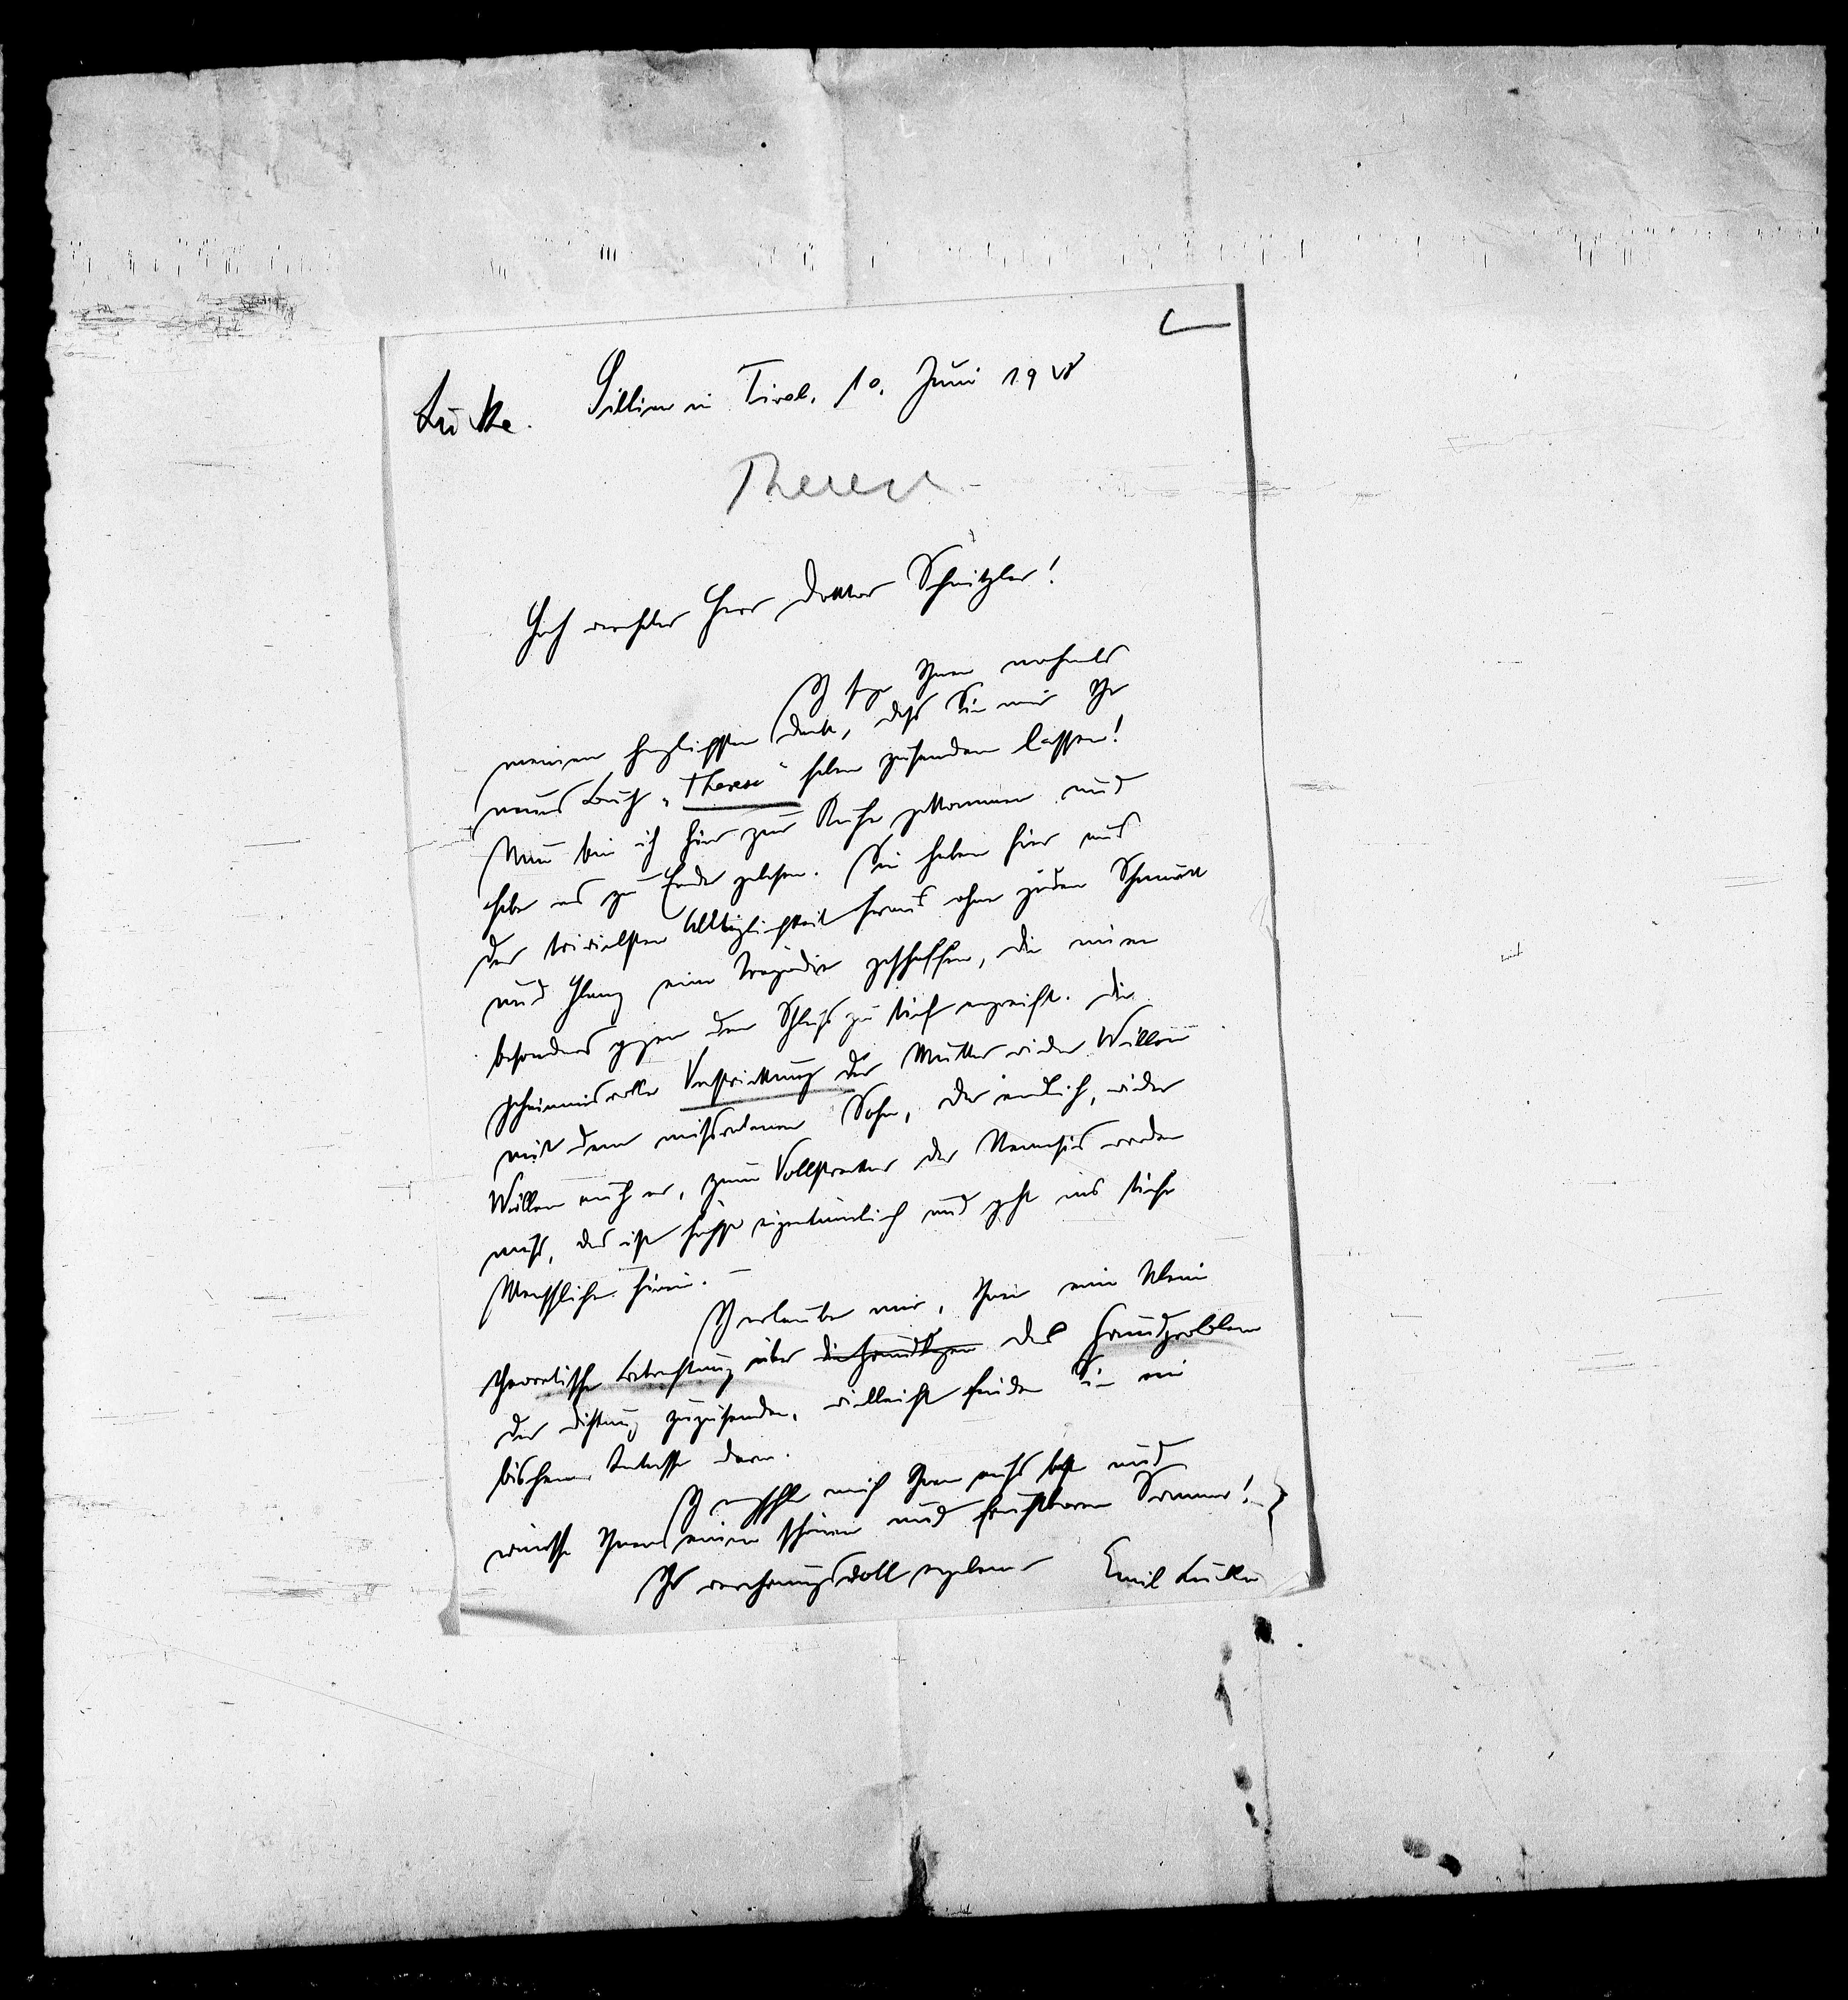 Lucke.
Sillian in Tirol, 10. Juni 1928
Therese
Hoch verehrter Herr Doktor Schnitzler!
Ich sage Ihnen nochmals
meinen herzlichsten Dank, dass Sie mir Ihr
neues Buch „Therese“ haben zusenden lassen!
Nun bin ich hier zur Ruhe gekommen und
habe es zu Ende gelesen. Sie haben hier aus
der trivialsten Alltäglichkeit heraus ohne jeden Schmuck
und Glanz eine Tragödie geschaffen, die einen
besonders gegen den Schluß zu tief ergreift. Die
geheimnisvolle Verstrickung der Mutter wider Willen
mit dem missratenen Sohn, der endlich, wider
Willen auch er, zum Vollstrecker der Nemesis werden
muß, das ist höchst eigentümlich und geht ins tiefste
Menschliche hinein. –
Ich erlaube mir, Ihnen eine kleine
theoretische Betrachtung über die Grundlagen das Grundproblem
der Dichtung zuzusenden, vielleicht finden Sie ein
bischen Interesse daran.
Ich empfehle mich Ihnen aufs beste und
wünsche Ihnen einen schönen und fruchtbaren Sommer!
Ihr verehrungsvoll ergebener Emil Lucka